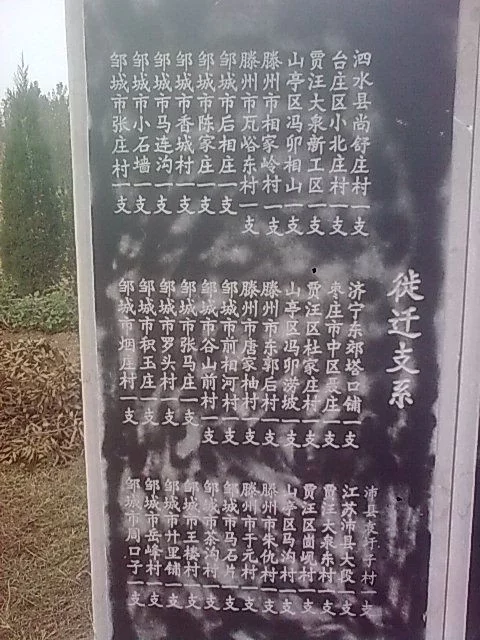 徙迁支系
泗水县尚舒庄村一支
台庄区小北庄村一支
贾汪大泉新工区一支
山亭区冯卯相山一支
滕州市相家岭村一支
滕州市瓦峪东村一支
邹城市后相庄一支
邹城市陈家庄一支
邹城市香城村一支
邹城市马连沟一支
邹城市小石墙一支
邹城市张庄村一支
济宁东郊塔口铺一支
枣庄市中区聂庄一支
贾汪区杜家庄村一支
山亭区冯卯涝坡一支
滕州市东郭后村一支
滕州市唐家柚村一支
邹城市前相河村一支
邹城市谷山前村一支
邹城市张马庄一支
邹城市罗头村一支
邹城市积玉庄一支
邹城市烟庄村一支
沛县袁子村一支
江苏沛县大段一支
贾汪大泉东村一支
贾汪区崮岘村一支
山亭区马沟村一支
滕州市朱仇村一支
滕州市于元村一支
邹城市马石片一支
邹城市茶沟村一支
邹城市王楼村一支
邹城市廿里铺一支
邹城市岳峰村一支
邹城市周口子一支